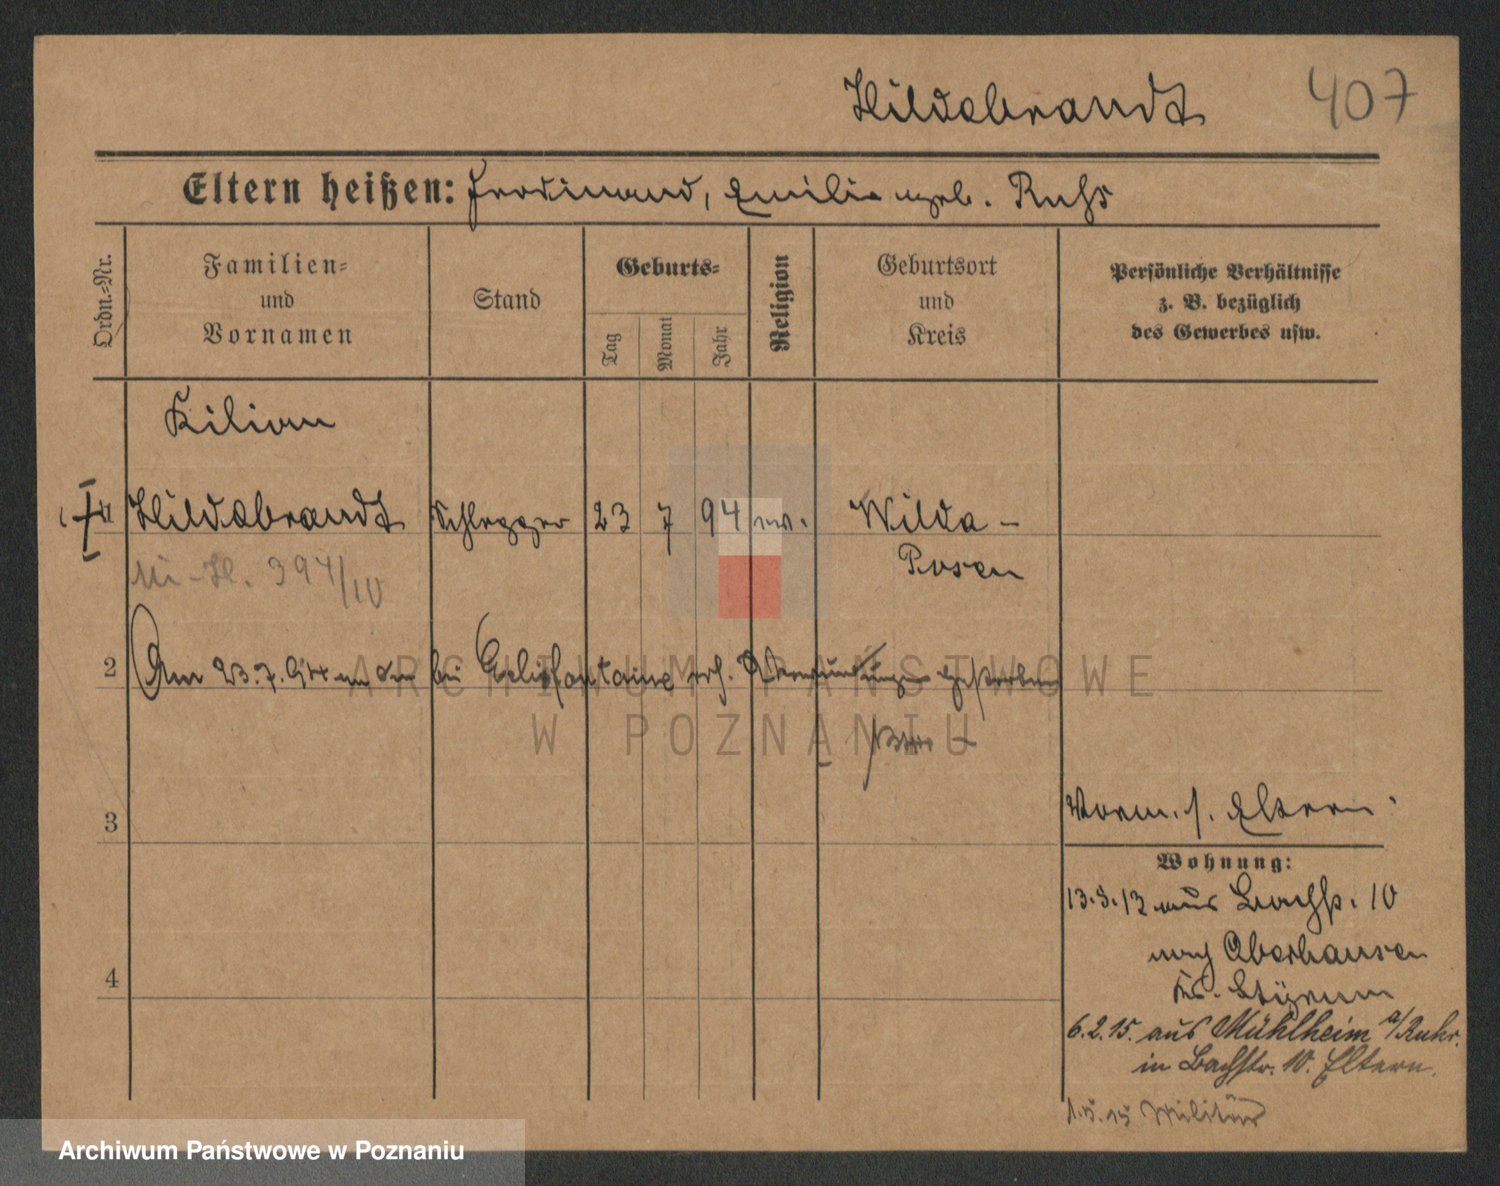 Hildebrandt 407
Eltern heißen: Ferdinand, Emilie geb. Ruhs
Ordn.-Nr.
Familien-
und
Vornamen
Stand
Geburts-
Tag
Monat
Jahr
Religion
Geburtsort
und
Kreis
Persönliche Verhältnisse
z. B. bezüglich
des Gewerbes usw.
Kilian
1 Hildebrandt 23 7 94 Wilda -
Posen
394/10
2 Am 23.7. bei gestorben
3
4
Vorm. s. Eltern.
Wohnung:
13.3.12 aus Bachstr. 10
nach Oberhausen
Ks. Styrum
6.2.15. aus Mühlheim a/Ruhr.
in Bachstr. 10. Eltern.
1.5.15 Militär
ARCHIWUM PAŃSTWOWE
W POZNANIU
Archiwum Państwowe w Poznaniu